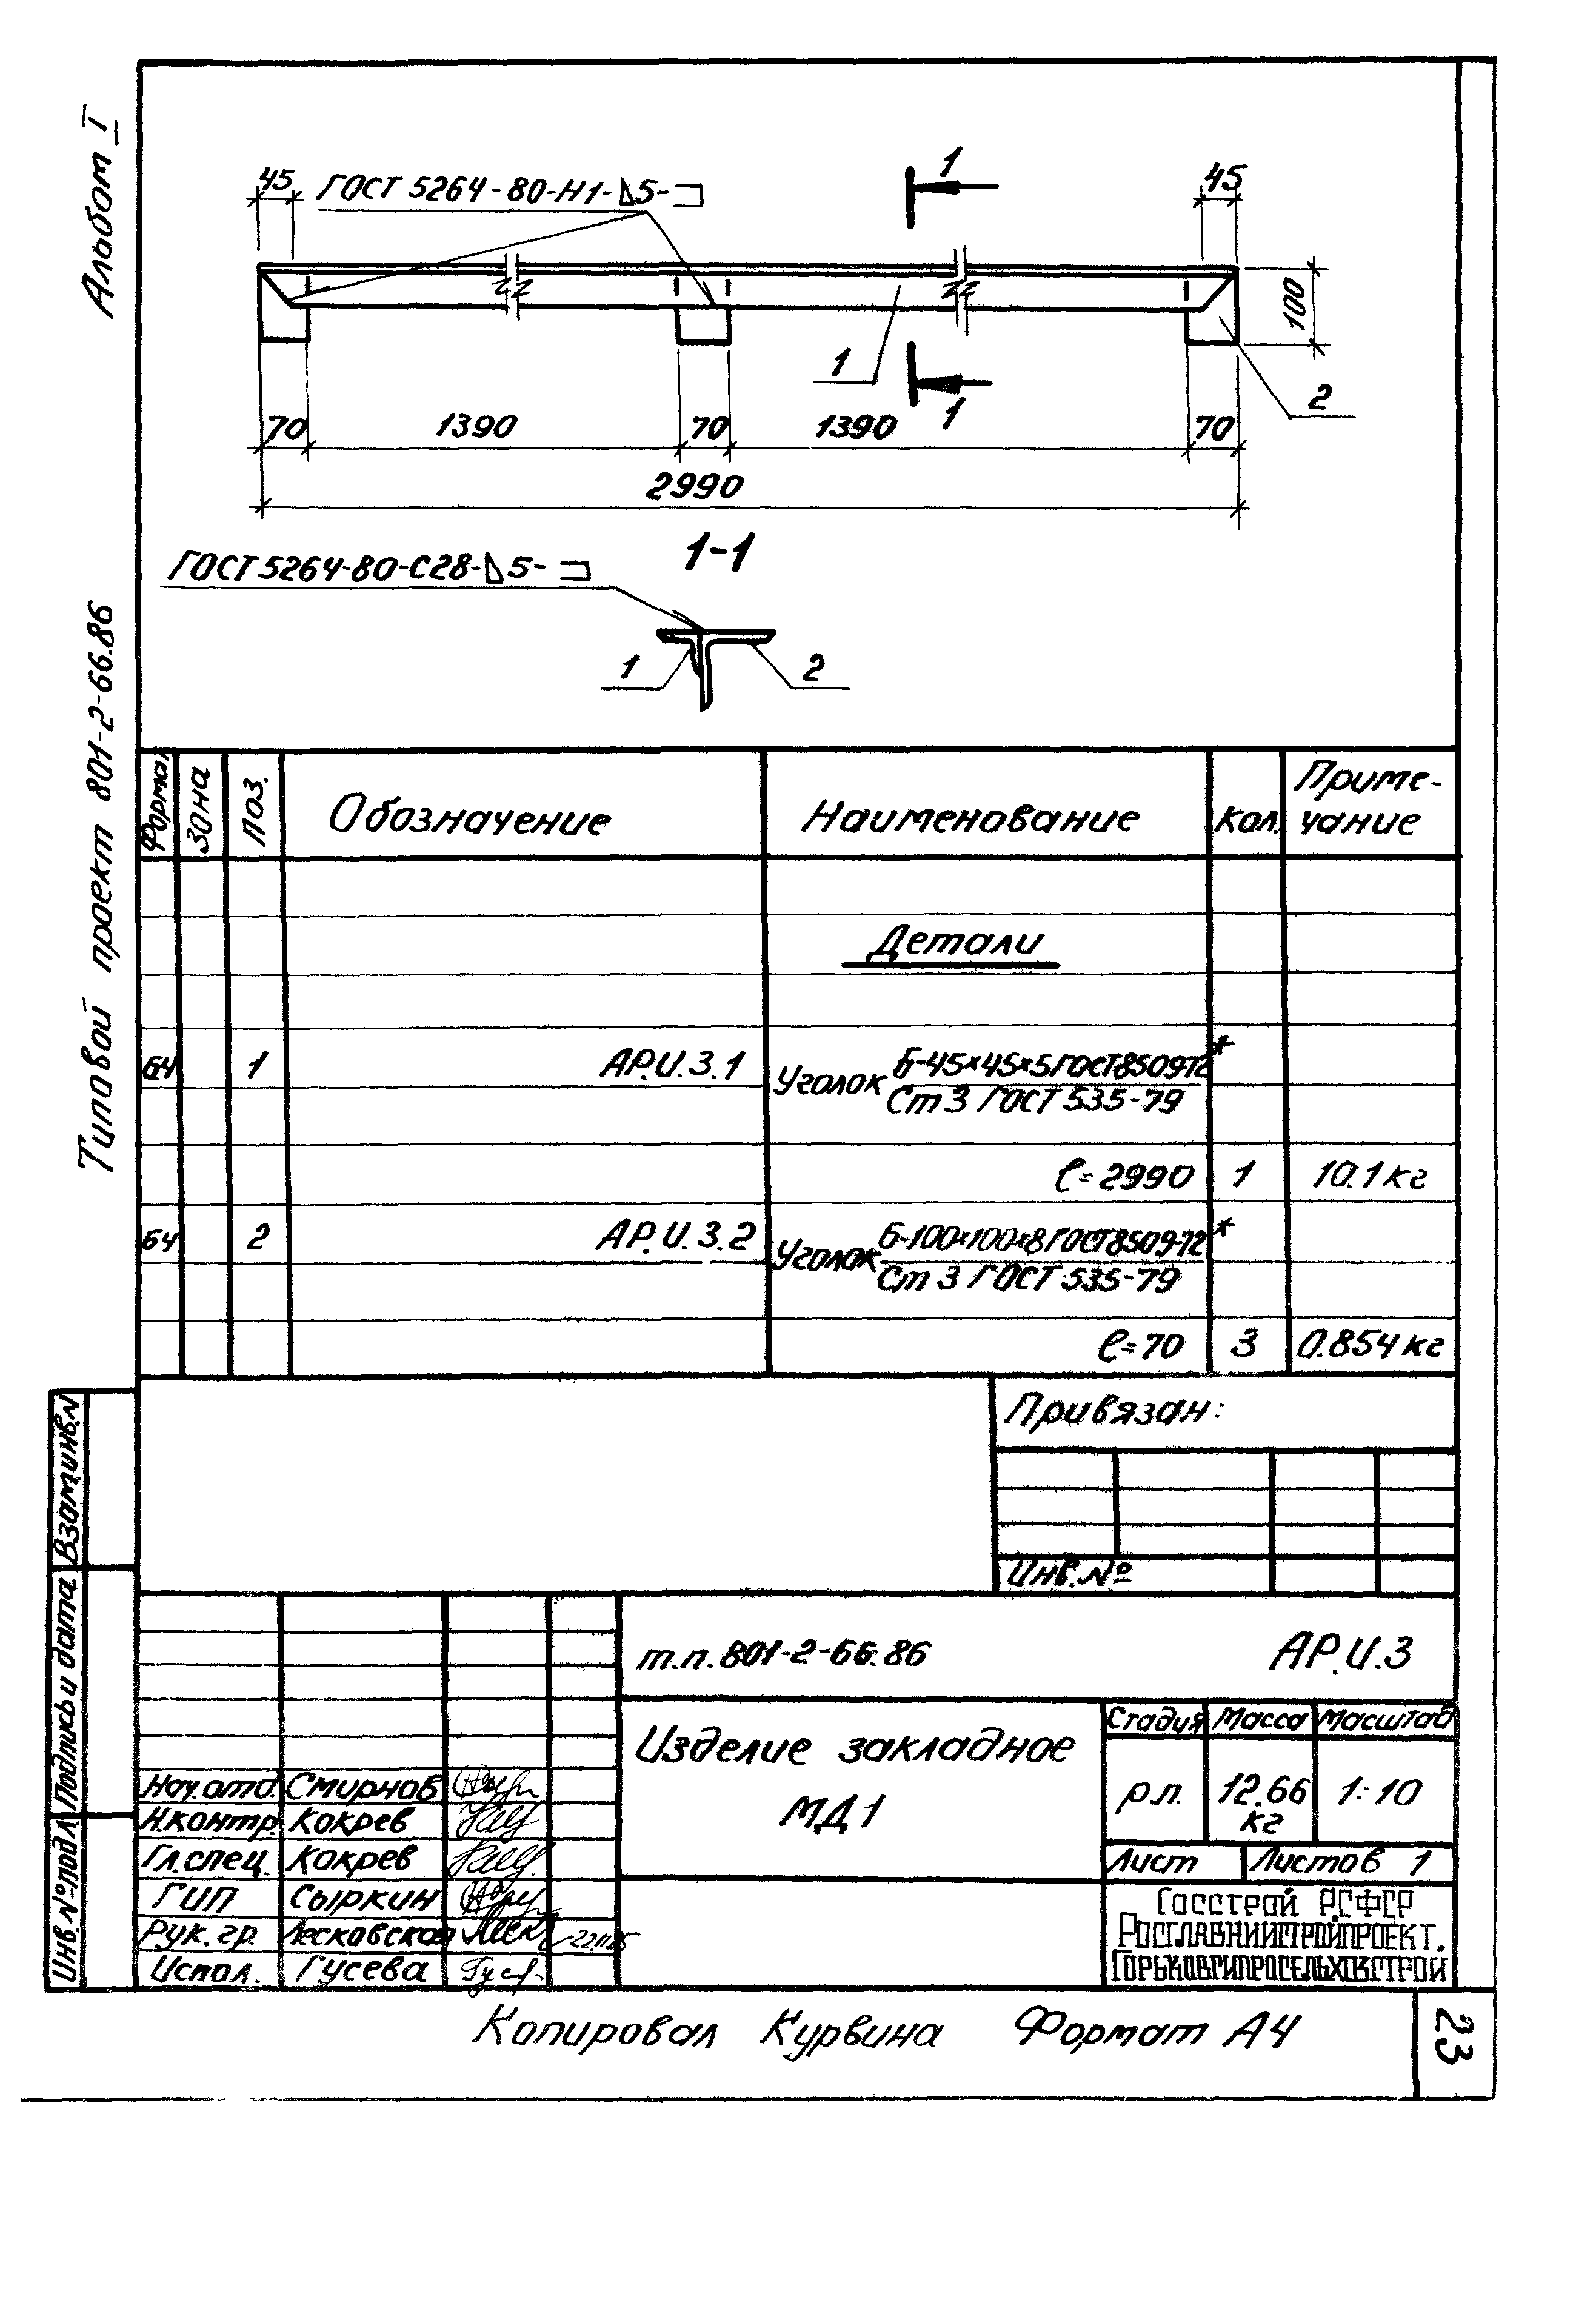 Альбом I
Типовой проект 801-2-66.86
45
ГОСТ 5264-80-Н1-⊿5-⊐
1
45
100
1
2
1
70
1390
70
1390
70
2990
1-1
ГОСТ 5264-80-С28-⊿5-⊐
1
2
Формат
Зона
Поз.
Обозначение
Наименование
Кол.
Приме-
чание
Детали
БЧ 1 АР.И.3.1 Уголок Б-45×45×5 ГОСТ 8509-72*
Ст 3 ГОСТ 535-79
ℓ=2990 1 10.1 кг
БЧ 2 АР.И.3.2 Уголок Б-100×100×8 ГОСТ 8509-72*
Ст 3 ГОСТ 535-79
ℓ=70 3 0.854 кг
Привязан:
Инв. №
Взам.инв.N
Подпись и дата
Инв. № подл
т.п. 801-2-66.86 АР.И.3
Изделие закладное
МД1
Стадия Масса Масштаб
р.п. 12.66 кг 1:10
Лист Листов 1
Госстрой РСФСР
Росглавниистройпроект.
Горьковгипросельхозстрой
Нач.отд. Смирнов
Н.контр. Кокрев
Гл.спец. Кокрев
ГИП Сыркин
Рук.гр. Лесковская
Испол. Гусева
Копировал Курвина Формат А4
23